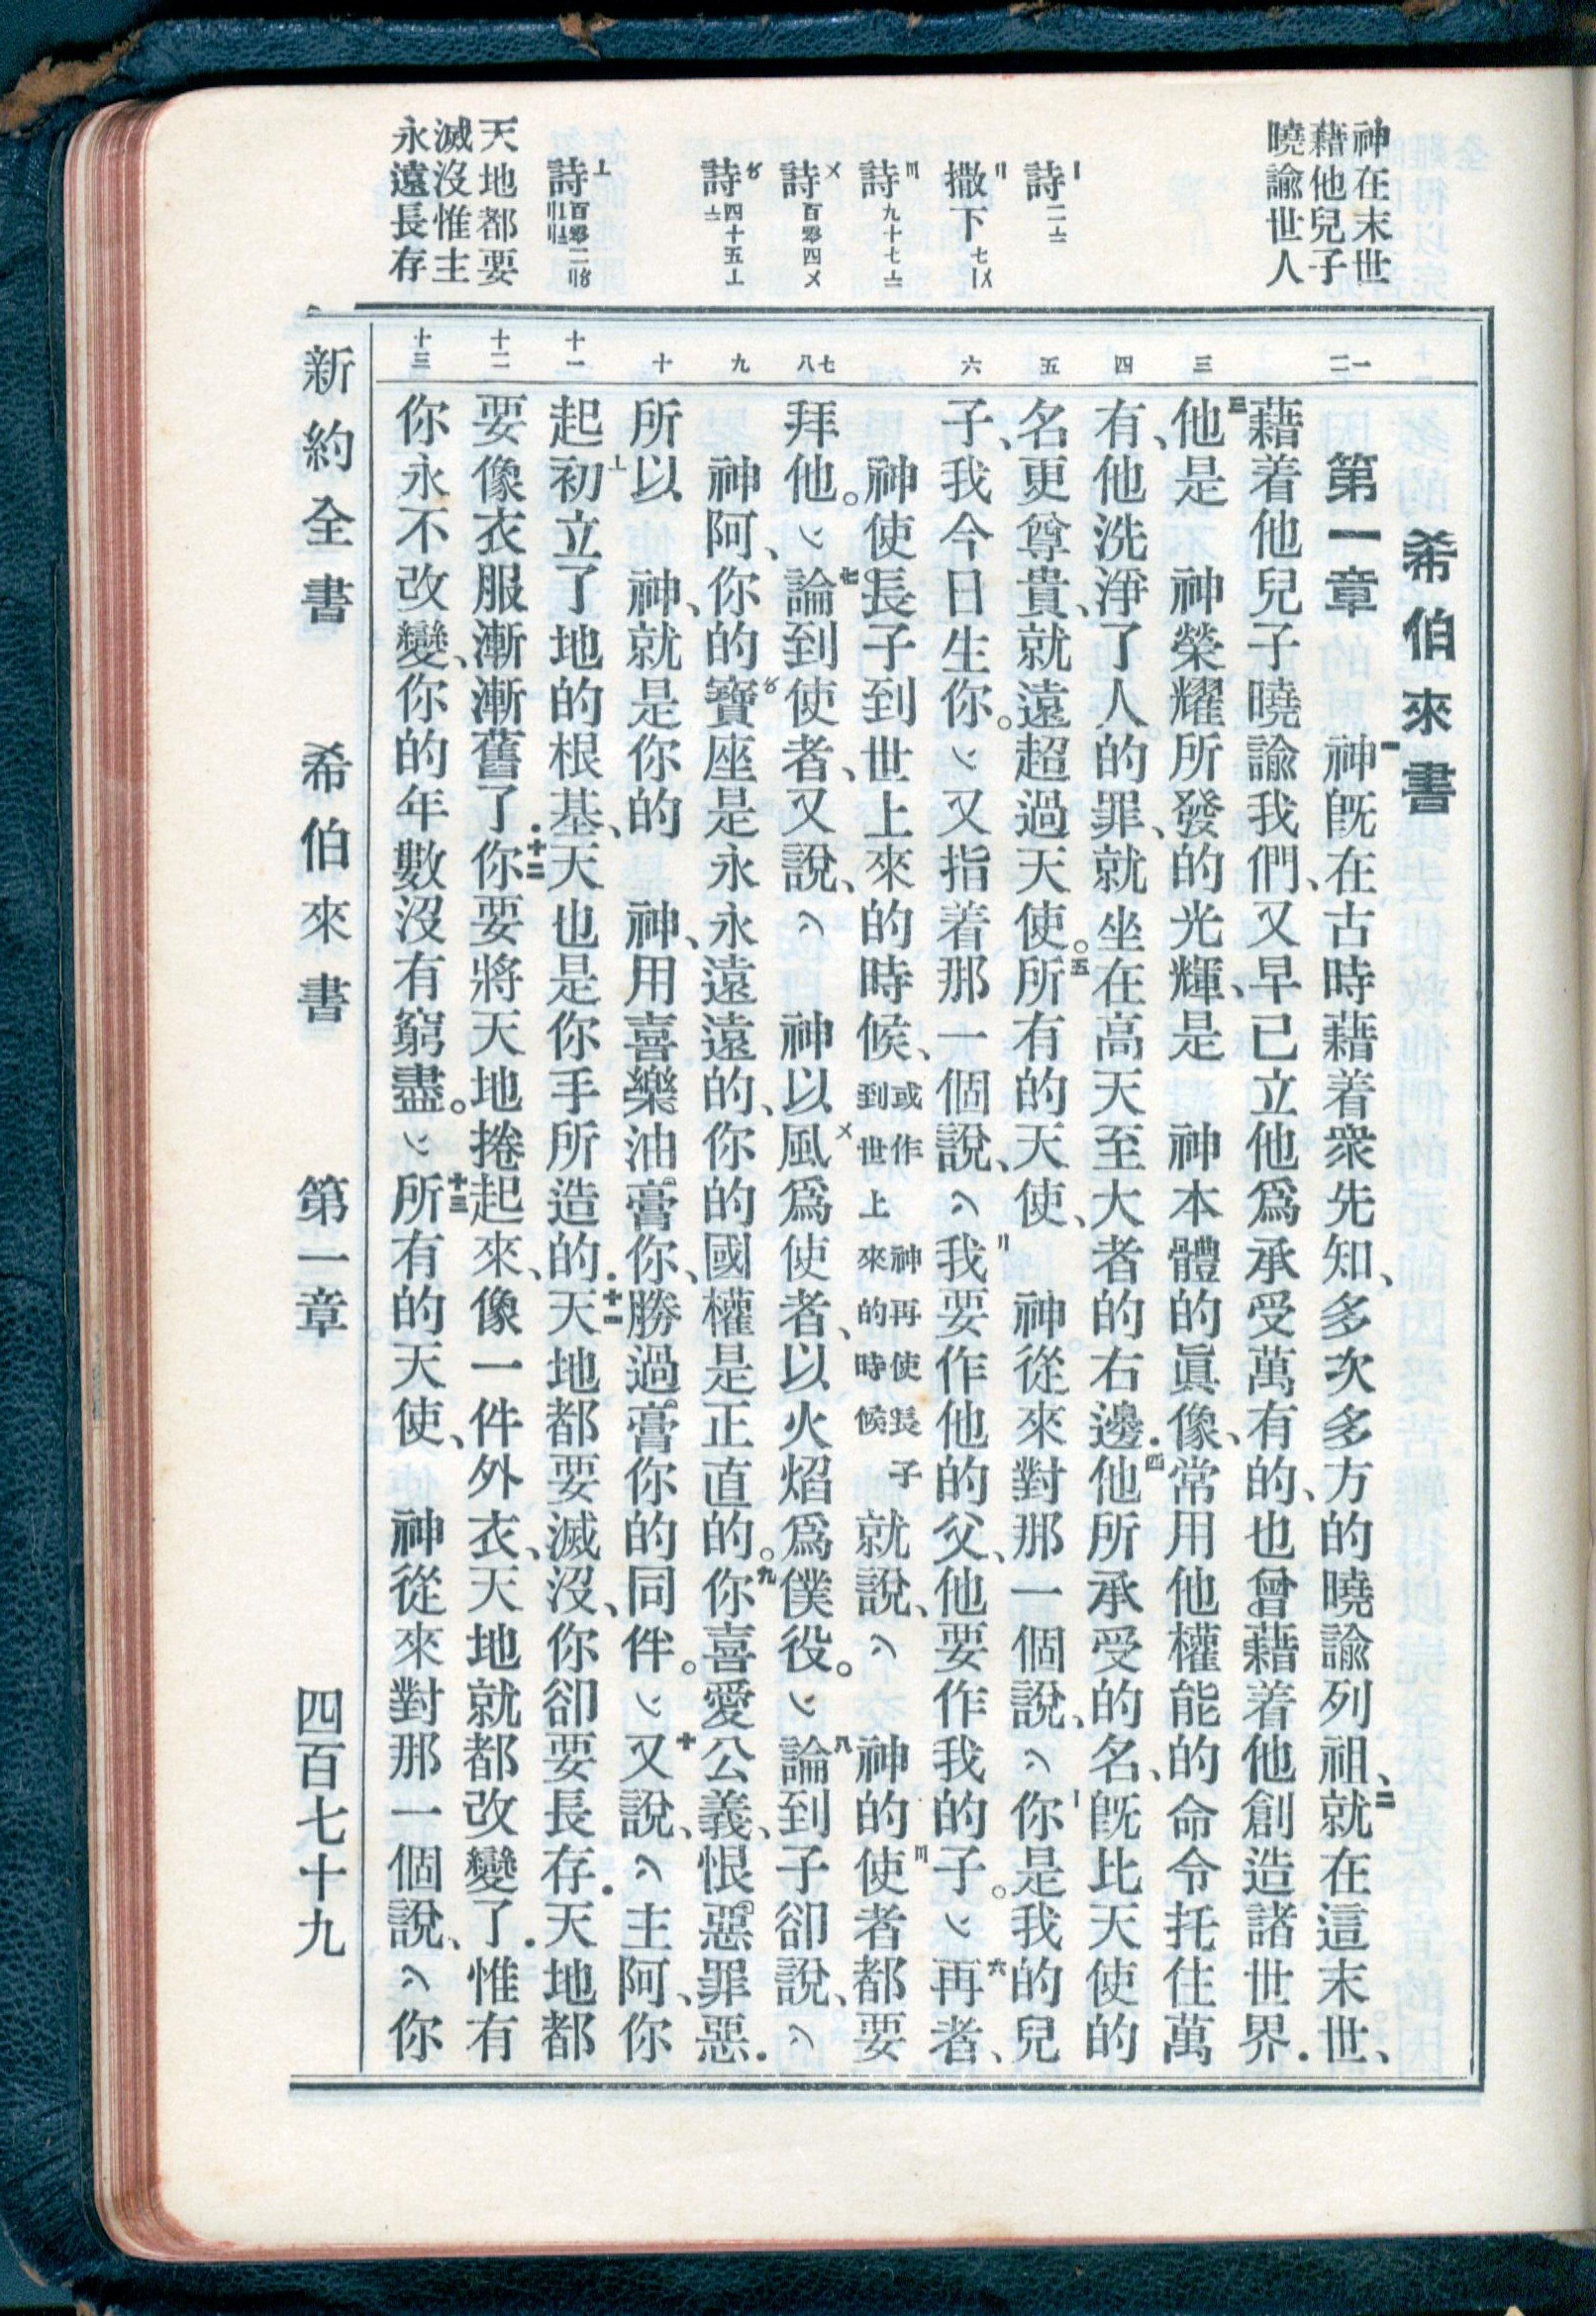 神在末世
藉他兒子
曉諭世人
詩二〦
撒下七〡〤
詩九十七〦
詩百零四〤
詩四十五〦
詩百零二
天地都要
滅沒惟主
永遠長存
一
二
三
四
五
六
七
八
九
十
十一
十二
十三
希伯來書
第一章 神既在古時藉着衆先知、多次多方的曉諭列祖、二就在這末世、
藉着他兒子曉諭我們、又早已立他爲承受萬有的、也曾藉着他創造諸世界．
三他是 神榮耀所發的光輝、是 神本體的眞像、常用他權能的命令托住萬
有、他洗淨了人的罪、就坐在高天至大者的右邊．四他所承受的名、既比天使的
名更尊貴、就遠超過天使。五所有的天使、 神從來對那一個說、〽你〡是我的兒
子、我今日生你。〽又指着那一個說、〽我〢要作他的父、他要作我的子。〽六再者、
神使長子到世上來的時候、或作 神再使長子到世上來的時候就說、〽 神的使〣者都要
拜他。〽七論到使者、又說、〽 神以風〤爲使者、以火焰爲僕役。〽八論到子卻說、〽
神阿、你的寶〥座是永永遠遠的、你的國權是正直的。九你喜愛公義、恨惡罪惡．
所以 神、就是你的 神、用喜樂油膏你、勝過膏你的同伴。〽十又說、〽主阿、你
起初〦立了地的根基、天也是你手所造的．十一天地都要滅沒、你卻要長存．天地都
要像衣服漸漸舊了．十二你要將天地捲起來、像一件外衣、天地就都改變了．惟有
你永不改變、你的年數沒有窮盡。〽十三所有的天使、 神從來對那一個說、〽你
新約全書 希伯來書 第一章 四百七十九